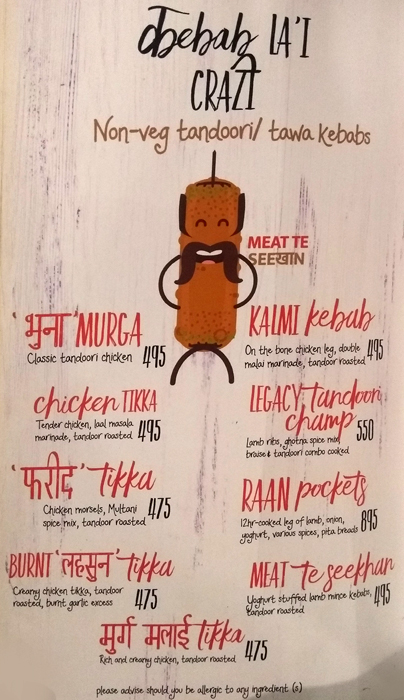 कebab LA'I
CRAZI
Non-veg tandoori/ tawa kebabs
MEAT TE
SEEखAN
'भुना' MURGA
Classic tandoori chicken 495
KALMI kebab
On the bone chicken leg, double
malai marinade, tandoor roasted 495
chicken TIKKA
Tender chicken, laal masala
marinade, tandoor roasted 495
LEGACY tandoori
champ 550
Lamb ribs, ghotna spice mix
braise & tandoori combo cooked
'फरीद' tikka
Chicken morsels, Multani
spice mix, tandoor roasted 475
RAAN pockets
12hr-cooked leg of lamb, onion,
yoghurt, various spices, pita breads 895
BURNT 'लहसुन' tikka
Creamy chicken tikka, tandoor
roasted, burnt garlic excess 475
MEAT te seekhan
Yoghurt stuffed lamb mince kebabs,
tandoor roasted 495
मुर्ग मलाई tikka
Rich and creamy chicken, tandoor roasted 475
please advise should you be allergic to any ingredient (s)